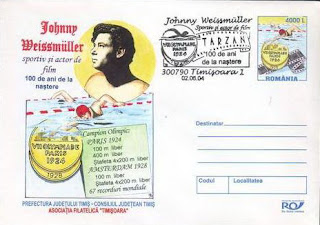 Johnny
Weissmüller
sportiv și actor de
film
100 de ani de la
naștere
VIII OLYMPIADE
PARIS
1924
1928
Campion Olimpic:
PARIS 1924
100 m liber
400 m liber
Ștafeta 4x200 m liber
AMSTERDAM 1928
100 m liber
Ștafeta 4x200 m liber
67 recorduri mondiale
PREFECTURA JUDEȚULUI TIMIȘ - CONSILIUL JUDEȚEAN TIMIȘ
ASOCIAȚIA FILATELICĂ "TIMIȘOARA"
Johnny Weissmüller
Sportiv și actor de film
VIII OLYMPIADE
PARIS
1924
TARZAN
100 de ani
de la naștere
300790 Timișoara 1
02.06.04
4000 L
ROMÂNIA
Destinatar
Codul
Localitatea